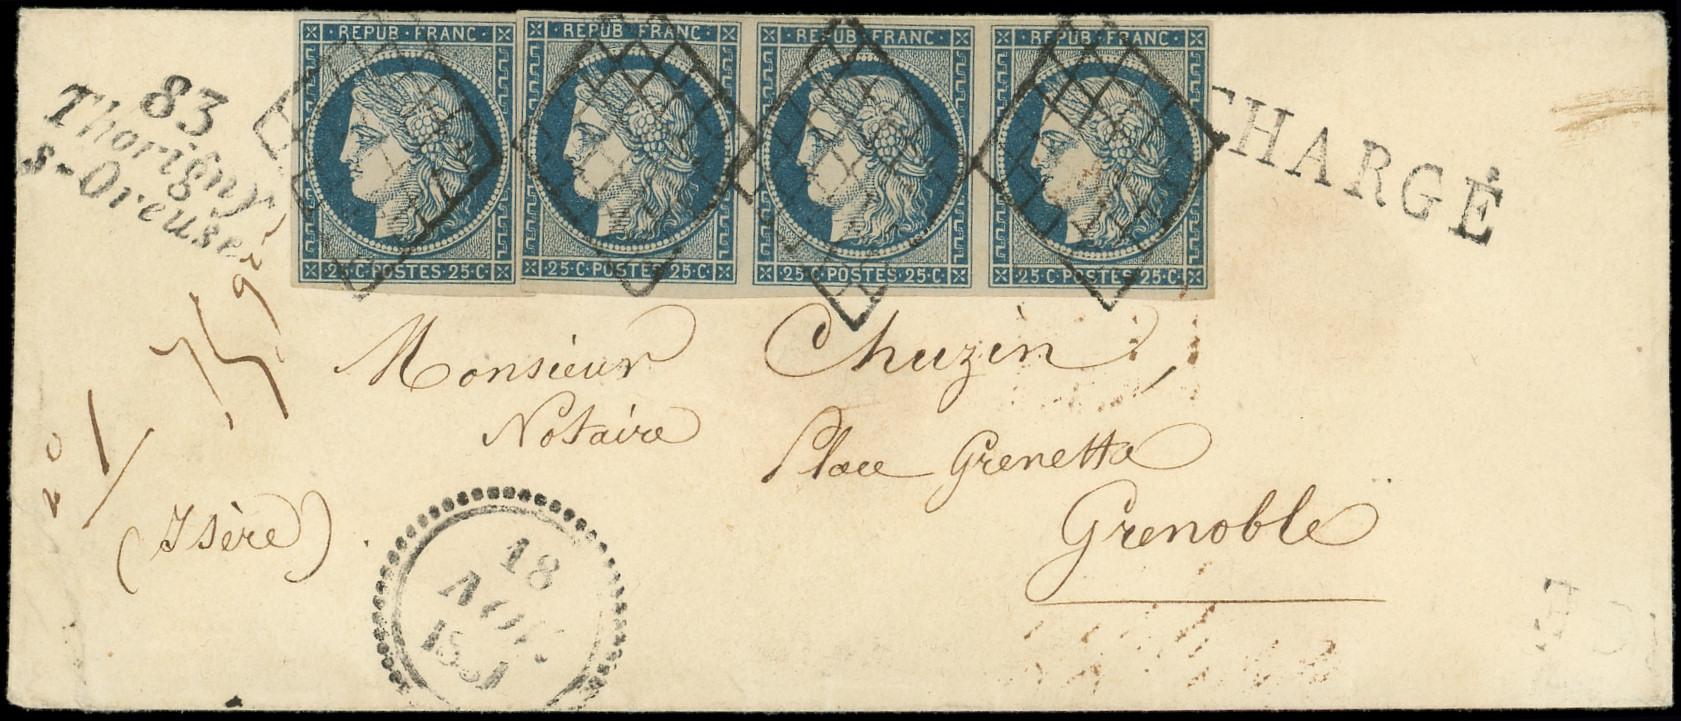 REPUB·FRANC·
25·C·POSTES·25·C·
REPUB·FRANC·
25·C·POSTES·25·C·
REPUB·FRANC·
25·C·POSTES·25·C·
REPUB·FRANC·
25·C·POSTES·25·C·
83
Thorigny-
s-Oreuse
CHARGÉ
Monsieur Chuzin,
Notaire Place Grenette
Grenoble
(Isère).
18